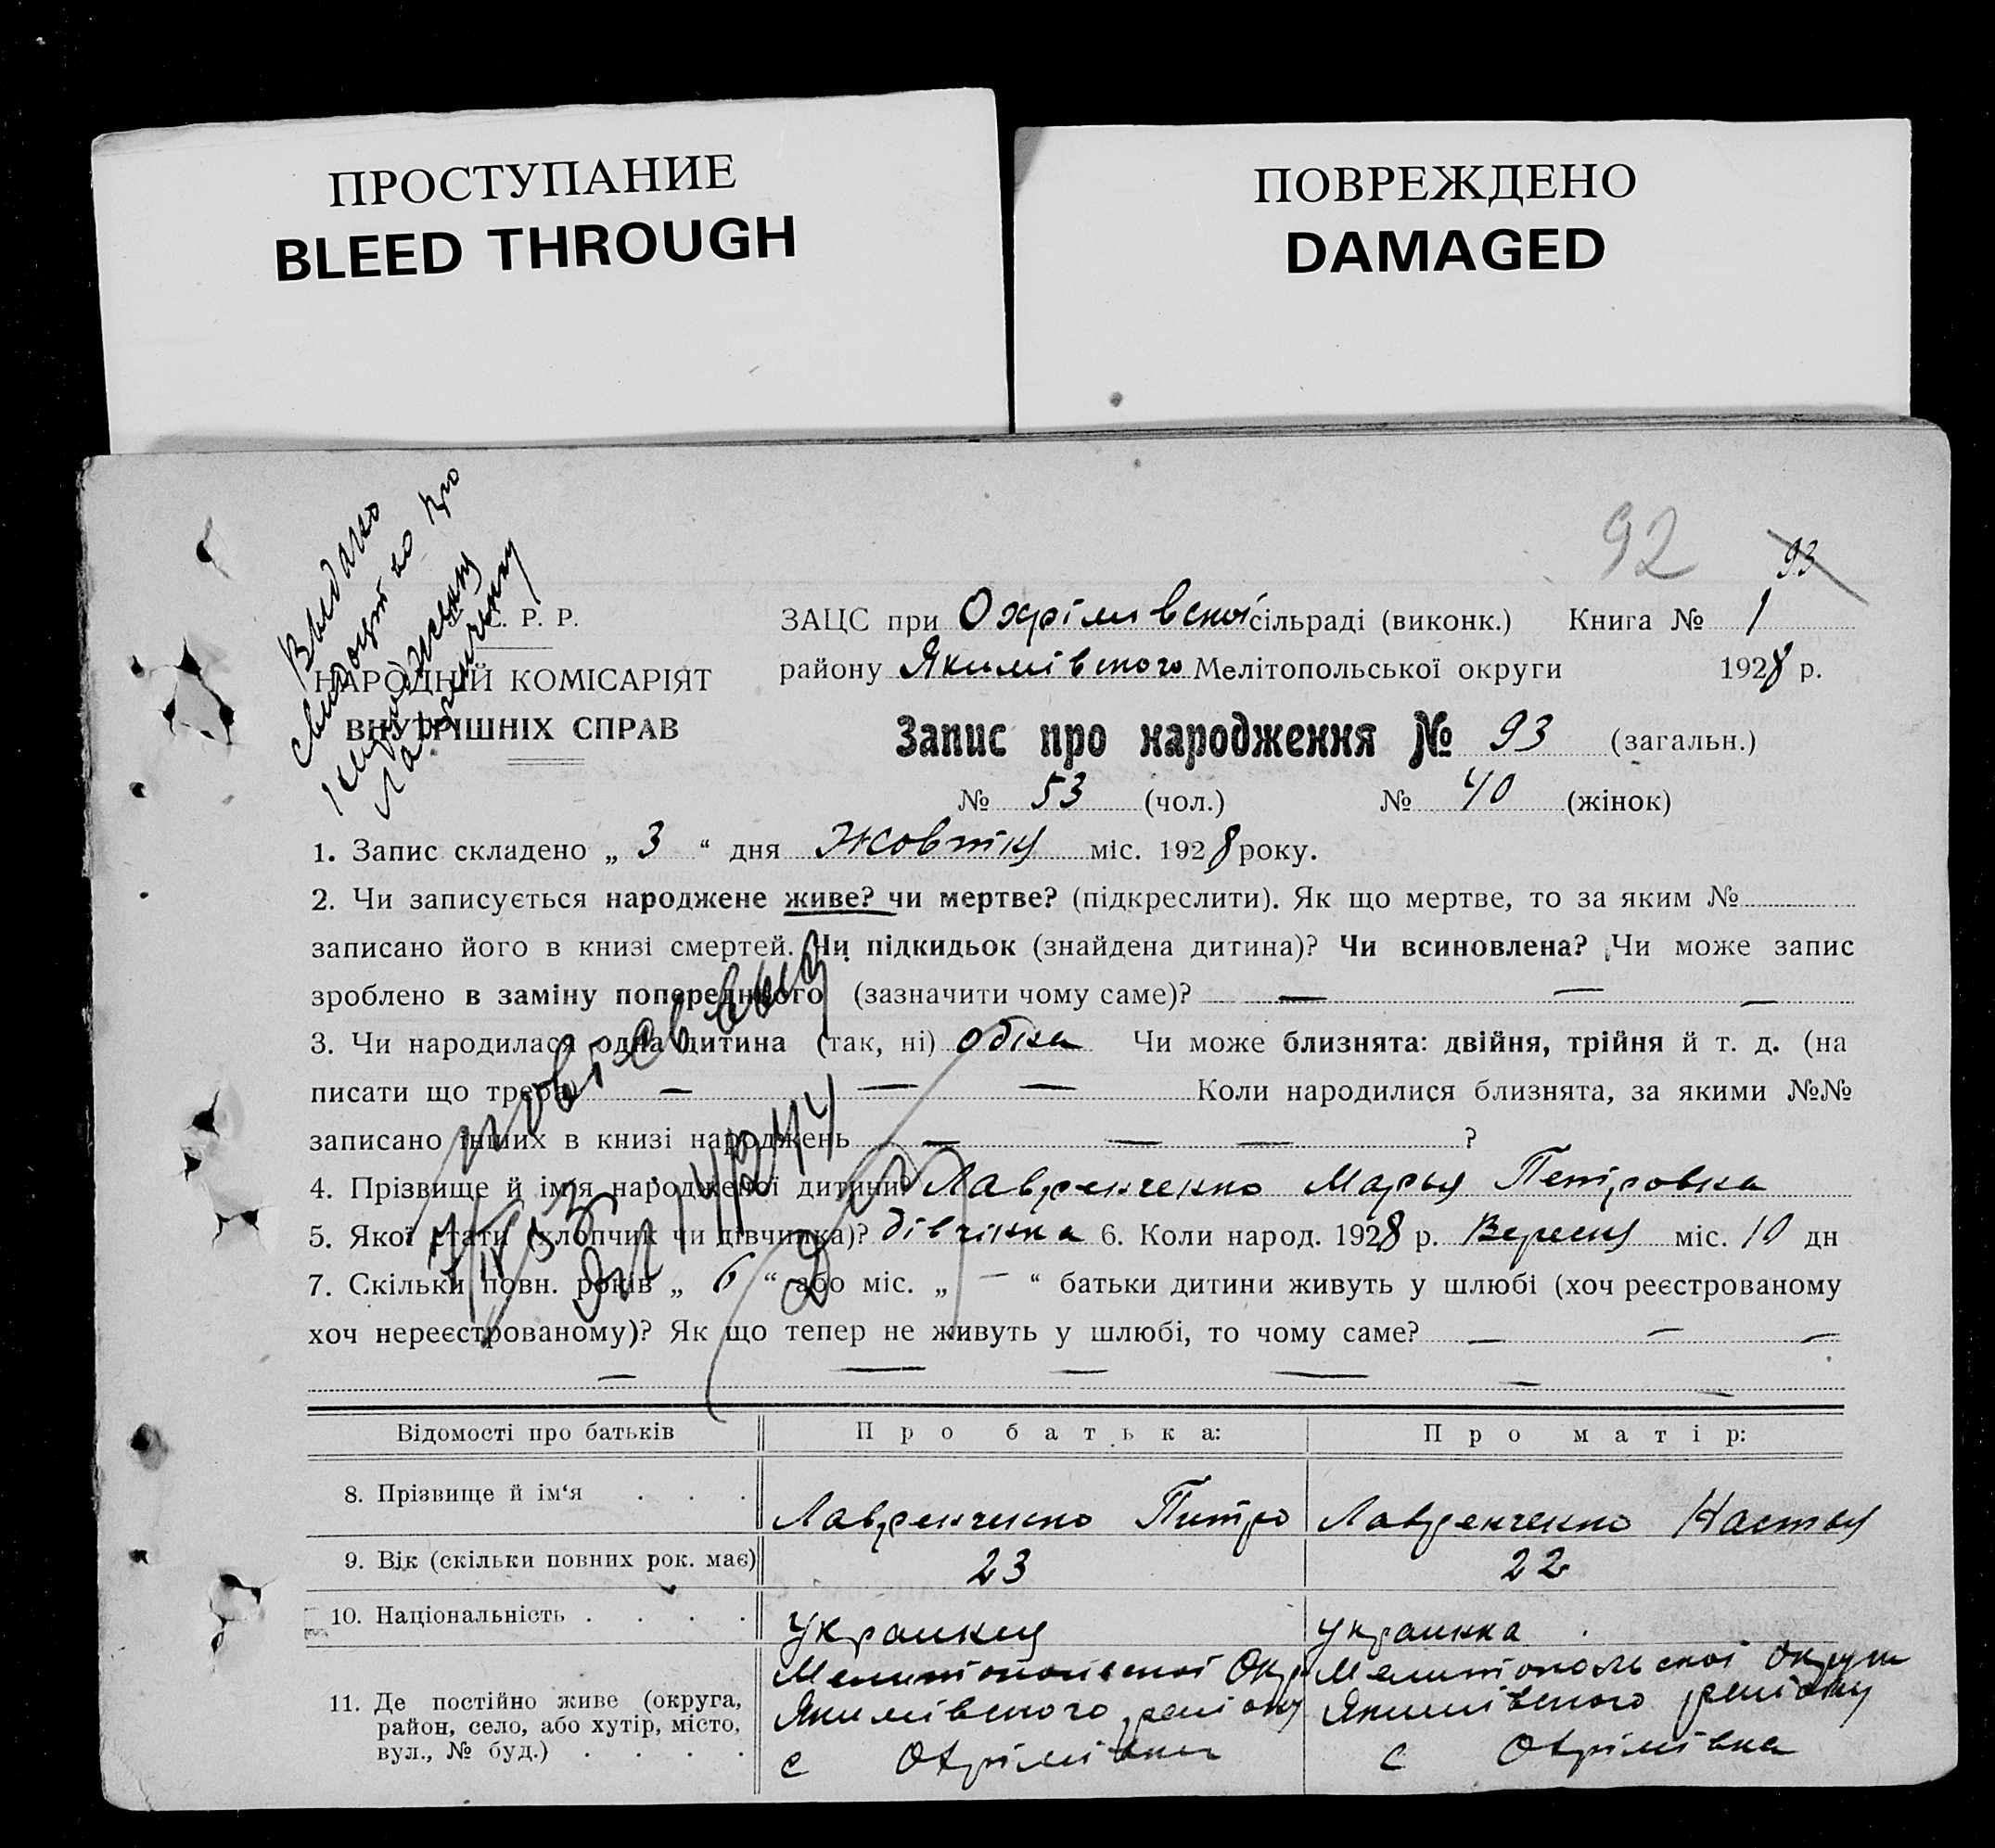 ПРОСТУПАНИЕ
BLEED THROUGH
ПОВРЕЖДЕНО
DAMAGED
92 93
Видано
про
С. Р. Р.
НАРОДНІЙ КОМІСАРІЯТ
ВНУТРІШНІХ СПРАВ
ЗАЦС при Охрімівської сільраді (виконк.) Книга № 1
району Якимівского Мелітопольської округи 1928 р.
Запис про народження № 93 (загальн.)
№ 53 (чол.) № 40 (жінок)
1. Запис складено „ 3 “ дня Жовтня міс. 1928 року.
2. Чи записується народжене живе? чи мертве? (підкреслити). Як що мертве, то за яким №
записано його в книзі смертей. Чи підкидьок (знайдена дитина)? Чи всиновлена? Чи може запис
зроблено в заміну попереднього (зазначити чому саме)? — — —
3. Чи народилася одна дитина (так, ні) одна Чи може близнята: двійня, трійня й т. д. (на
писати що треба) — — — Коли народилися близнята, за якими №№
записано інших в книзі народжень — — — ?
4. Прізвище й ім'я народженої дитини Лавренченко Марья Петровна
5. Якої стати (хлопчик чи дівчинка)? дівчінка 6. Коли народ. 1928 р. Вересня міс. 10 дн
7. Скільки повн. років „ 6 “ або міс. „ — “ батьки дитини живуть у шлюбі (хоч реєстрованому
хоч нереєстрованому)? Як що тепер не живуть у шлюбі, то чому саме? — — —
— — — — — —
Відомості про батьків Про батька: Про матір:
8. Прізвище й ім‘я . . . Лавренченко Питро Лавренченко Настья
9. Вік (скільки повних рок. має) 23 22
10. Національність . . . . Украинця украинка
11. Де постійно живе (округа,
район, село, або хутір, місто,
вул., № буд.) . . . .
Мелитопольської Окр
Якимівского району
с Охрімівка
Мелитопольскої Округи
Якимівского району
с Охрімівка